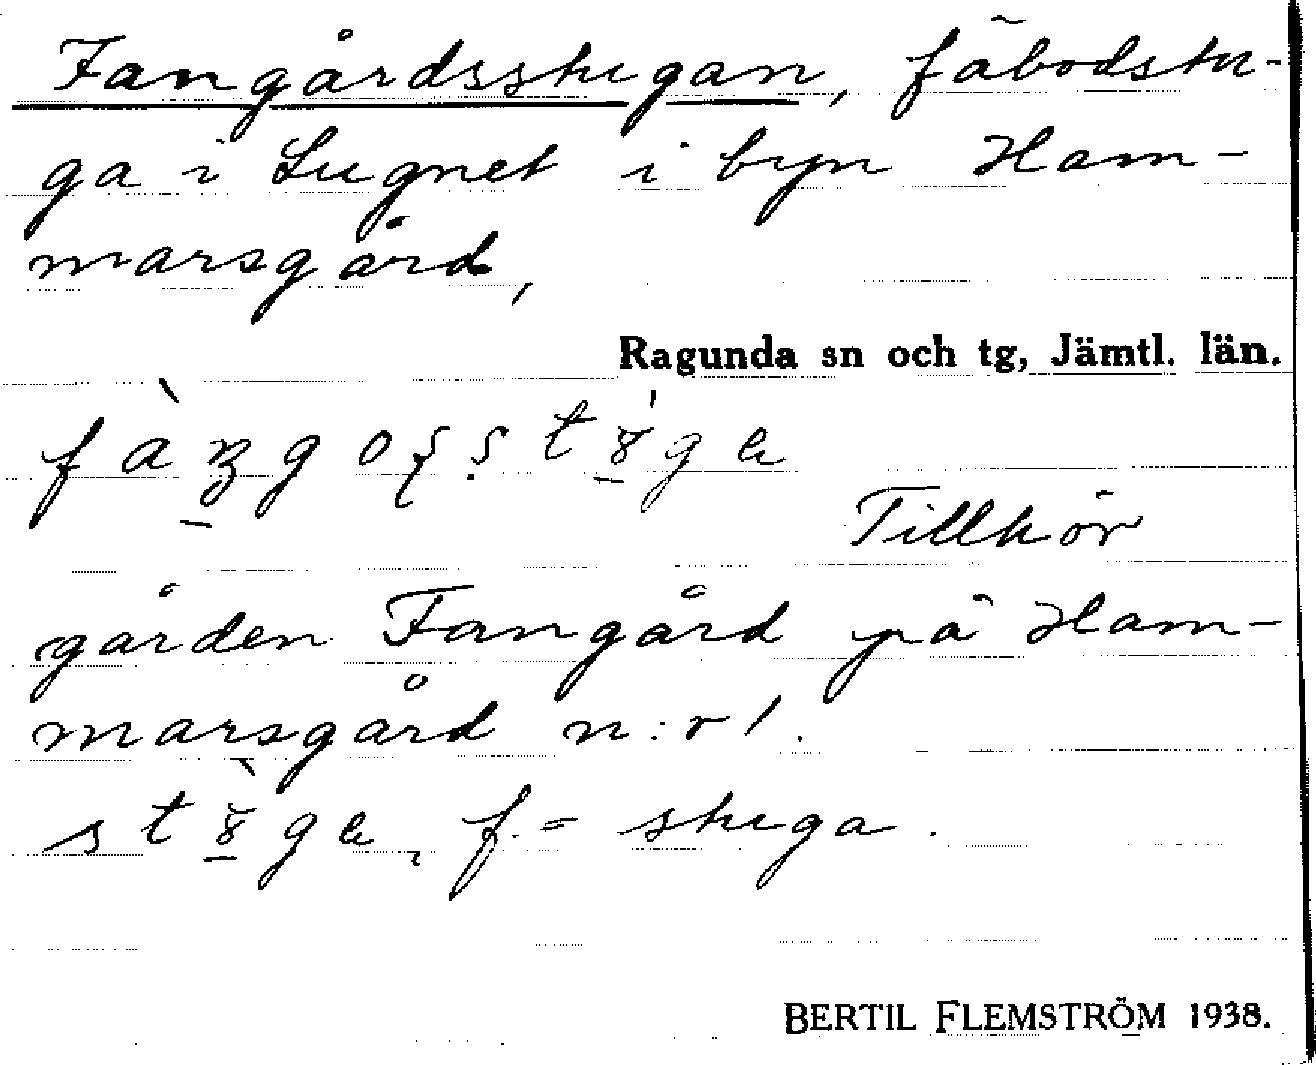 Fangårdsstugan, fäbodstu-
ga i Lugnet i byn Ham-
marsgård,
Ragunda sn och tg, Jämtl. län.
Tillhör
gården Fangård på Ham-
marsgård n:r 1.
f = stuga.
BERTIL FLEMSTRÖM 1938.